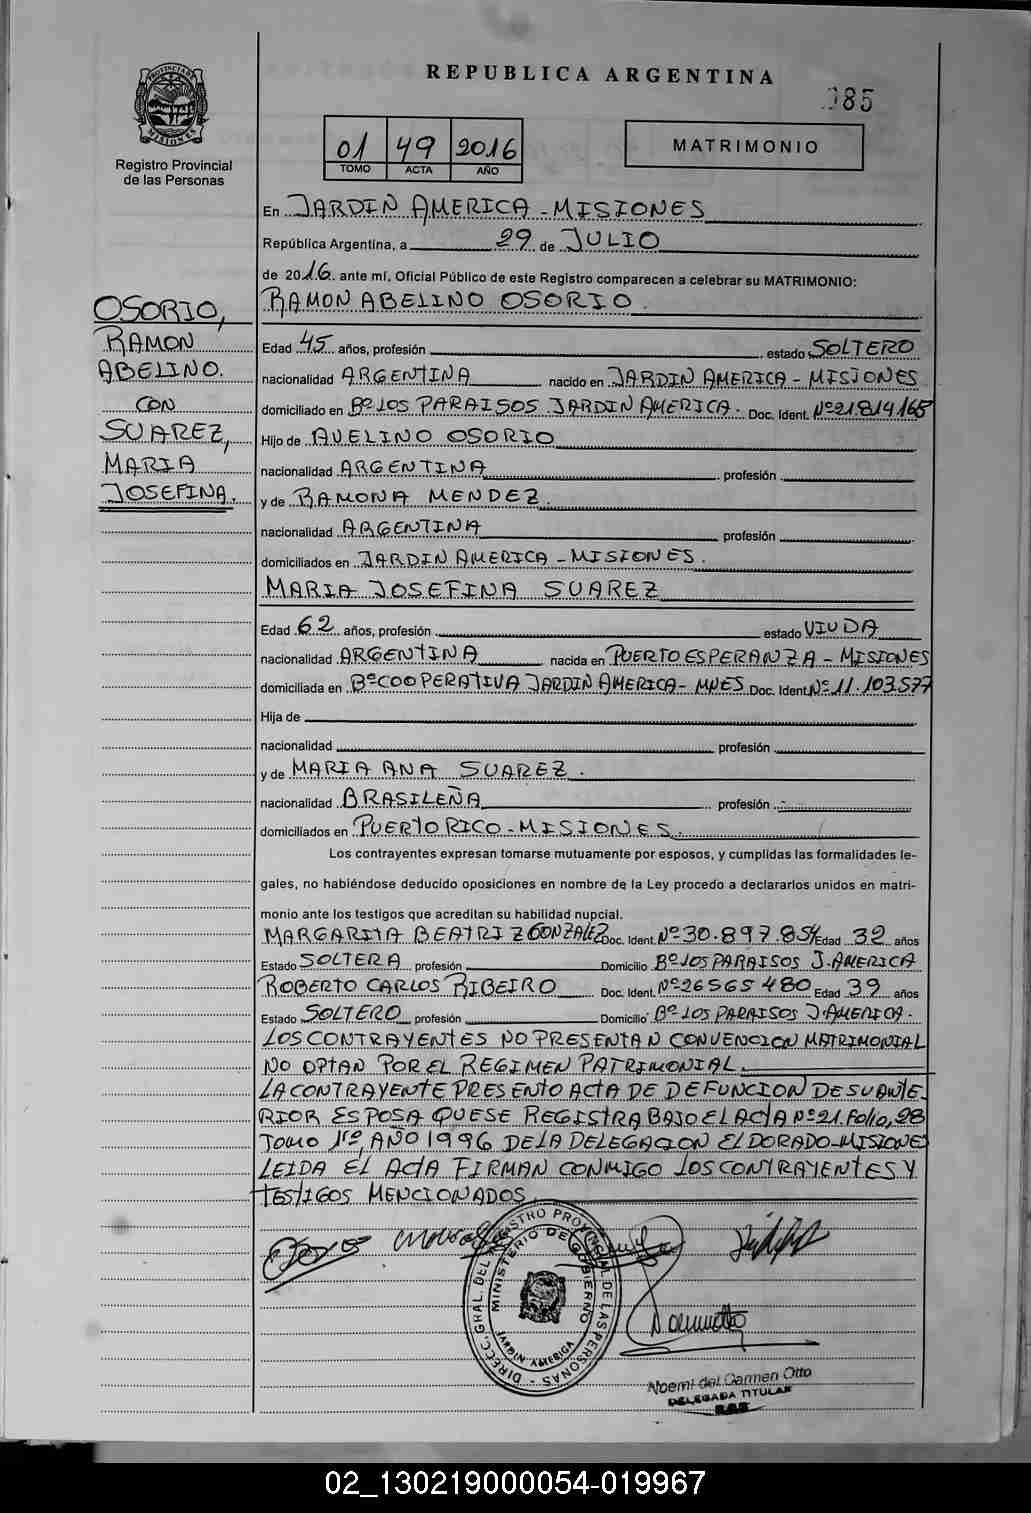 REPUBLICA ARGENTINA
085
PROVINCIA DE MISIONES
Registro Provincial
de las Personas
01 49 2016
TOMO ACTA AÑO
MATRIMONIO
En JARDIN AMERICA - MISIONES
República Argentina, a 29 de JULIO
de 2016. ante mí, Oficial Público de este Registro comparecen a celebrar su MATRIMONIO:
RAMON ABELINO OSORIO.
OSORIO,
RAMON
ABELINO.
CON
SUAREZ,
MARIA
JOSEFINA.
Edad 45 años, profesión estado SOLTERO
nacionalidad ARGENTINA nacido en JARDIN AMERICA - MISIONES
domiciliado en Bº LOS PARAISOS JARDIN AMERICA. Doc. Ident. Nº 21.814.165
Hijo de AVELINO OSORIO
nacionalidad ARGENTINA profesión
y de RAMONA MENDEZ.
nacionalidad ARGENTINA profesión
domiciliados en JARDIN AMERICA - MISIONES.
MARIA JOSEFINA SUAREZ
Edad 62 años, profesión estado VIUDA
nacionalidad ARGENTINA nacida en PUERTO ESPERANZA - MISIONES
domiciliada en Bº COOPERATIVA JARDIN AMERICA - MNES Doc. Ident. Nº 11.103.577
Hija de
nacionalidad profesión
y de MARIA ANA SUAREZ.
nacionalidad BRASILEÑA profesión
domiciliados en PUERTO RICO - MISIONES.
Los contrayentes expresan tomarse mutuamente por esposos, y cumplidas las formalidades le-
gales, no habiéndose deducido oposiciones en nombre de la Ley procedo a declararlos unidos en matri-
monio ante los testigos que acreditan su habilidad nupcial.
MARGARITA BEATRIZ GONZALEZ Doc. Ident. Nº 30.897.854 Edad 32 años
Estado SOLTERA profesión Domicilio Bº LOS PARAISOS J. AMERICA
ROBERTO CARLOS RIBEIRO Doc. Ident. Nº 26565480 Edad 39 años
Estado SOLTERO profesión Domicilio Bº LOS PARAISOS J. AMERICA.
LOS CONTRAYENTES NO PRESENTAN CONVENCION MATRIMONIAL
NO OPTAN POR EL REGIMEN PATRIMONIAL.
LA CONTRAYENTE PRESENTO ACTA DE DEFUNCION DE SU ANTE
RIOR ESPOSA QUE SE REGISTRA BAJO EL ACTA Nº 21. Folio, 28
TOMO 1ro, AÑO 1996 DE LA DELEGACION ELDORADO-MISIONE
LEIDA EL ACTA FIRMAN CONMIGO LOS CONTRAYENTES Y
TESTIGOS MENCIONADOS
DIRECC. GRAL. DEL REGISTRO PROVINCIAL DE LAS PERSONAS
MINISTERIO DE GOBIERNO
JARDIN AMERICA
Noemi del Carmen Otto
DELEGADA TITULAR
02_130219000054-019967